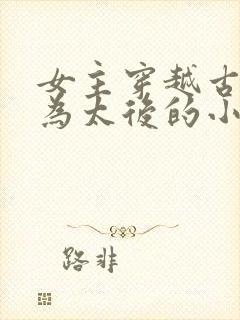 女主穿越古
為太後的小
路非